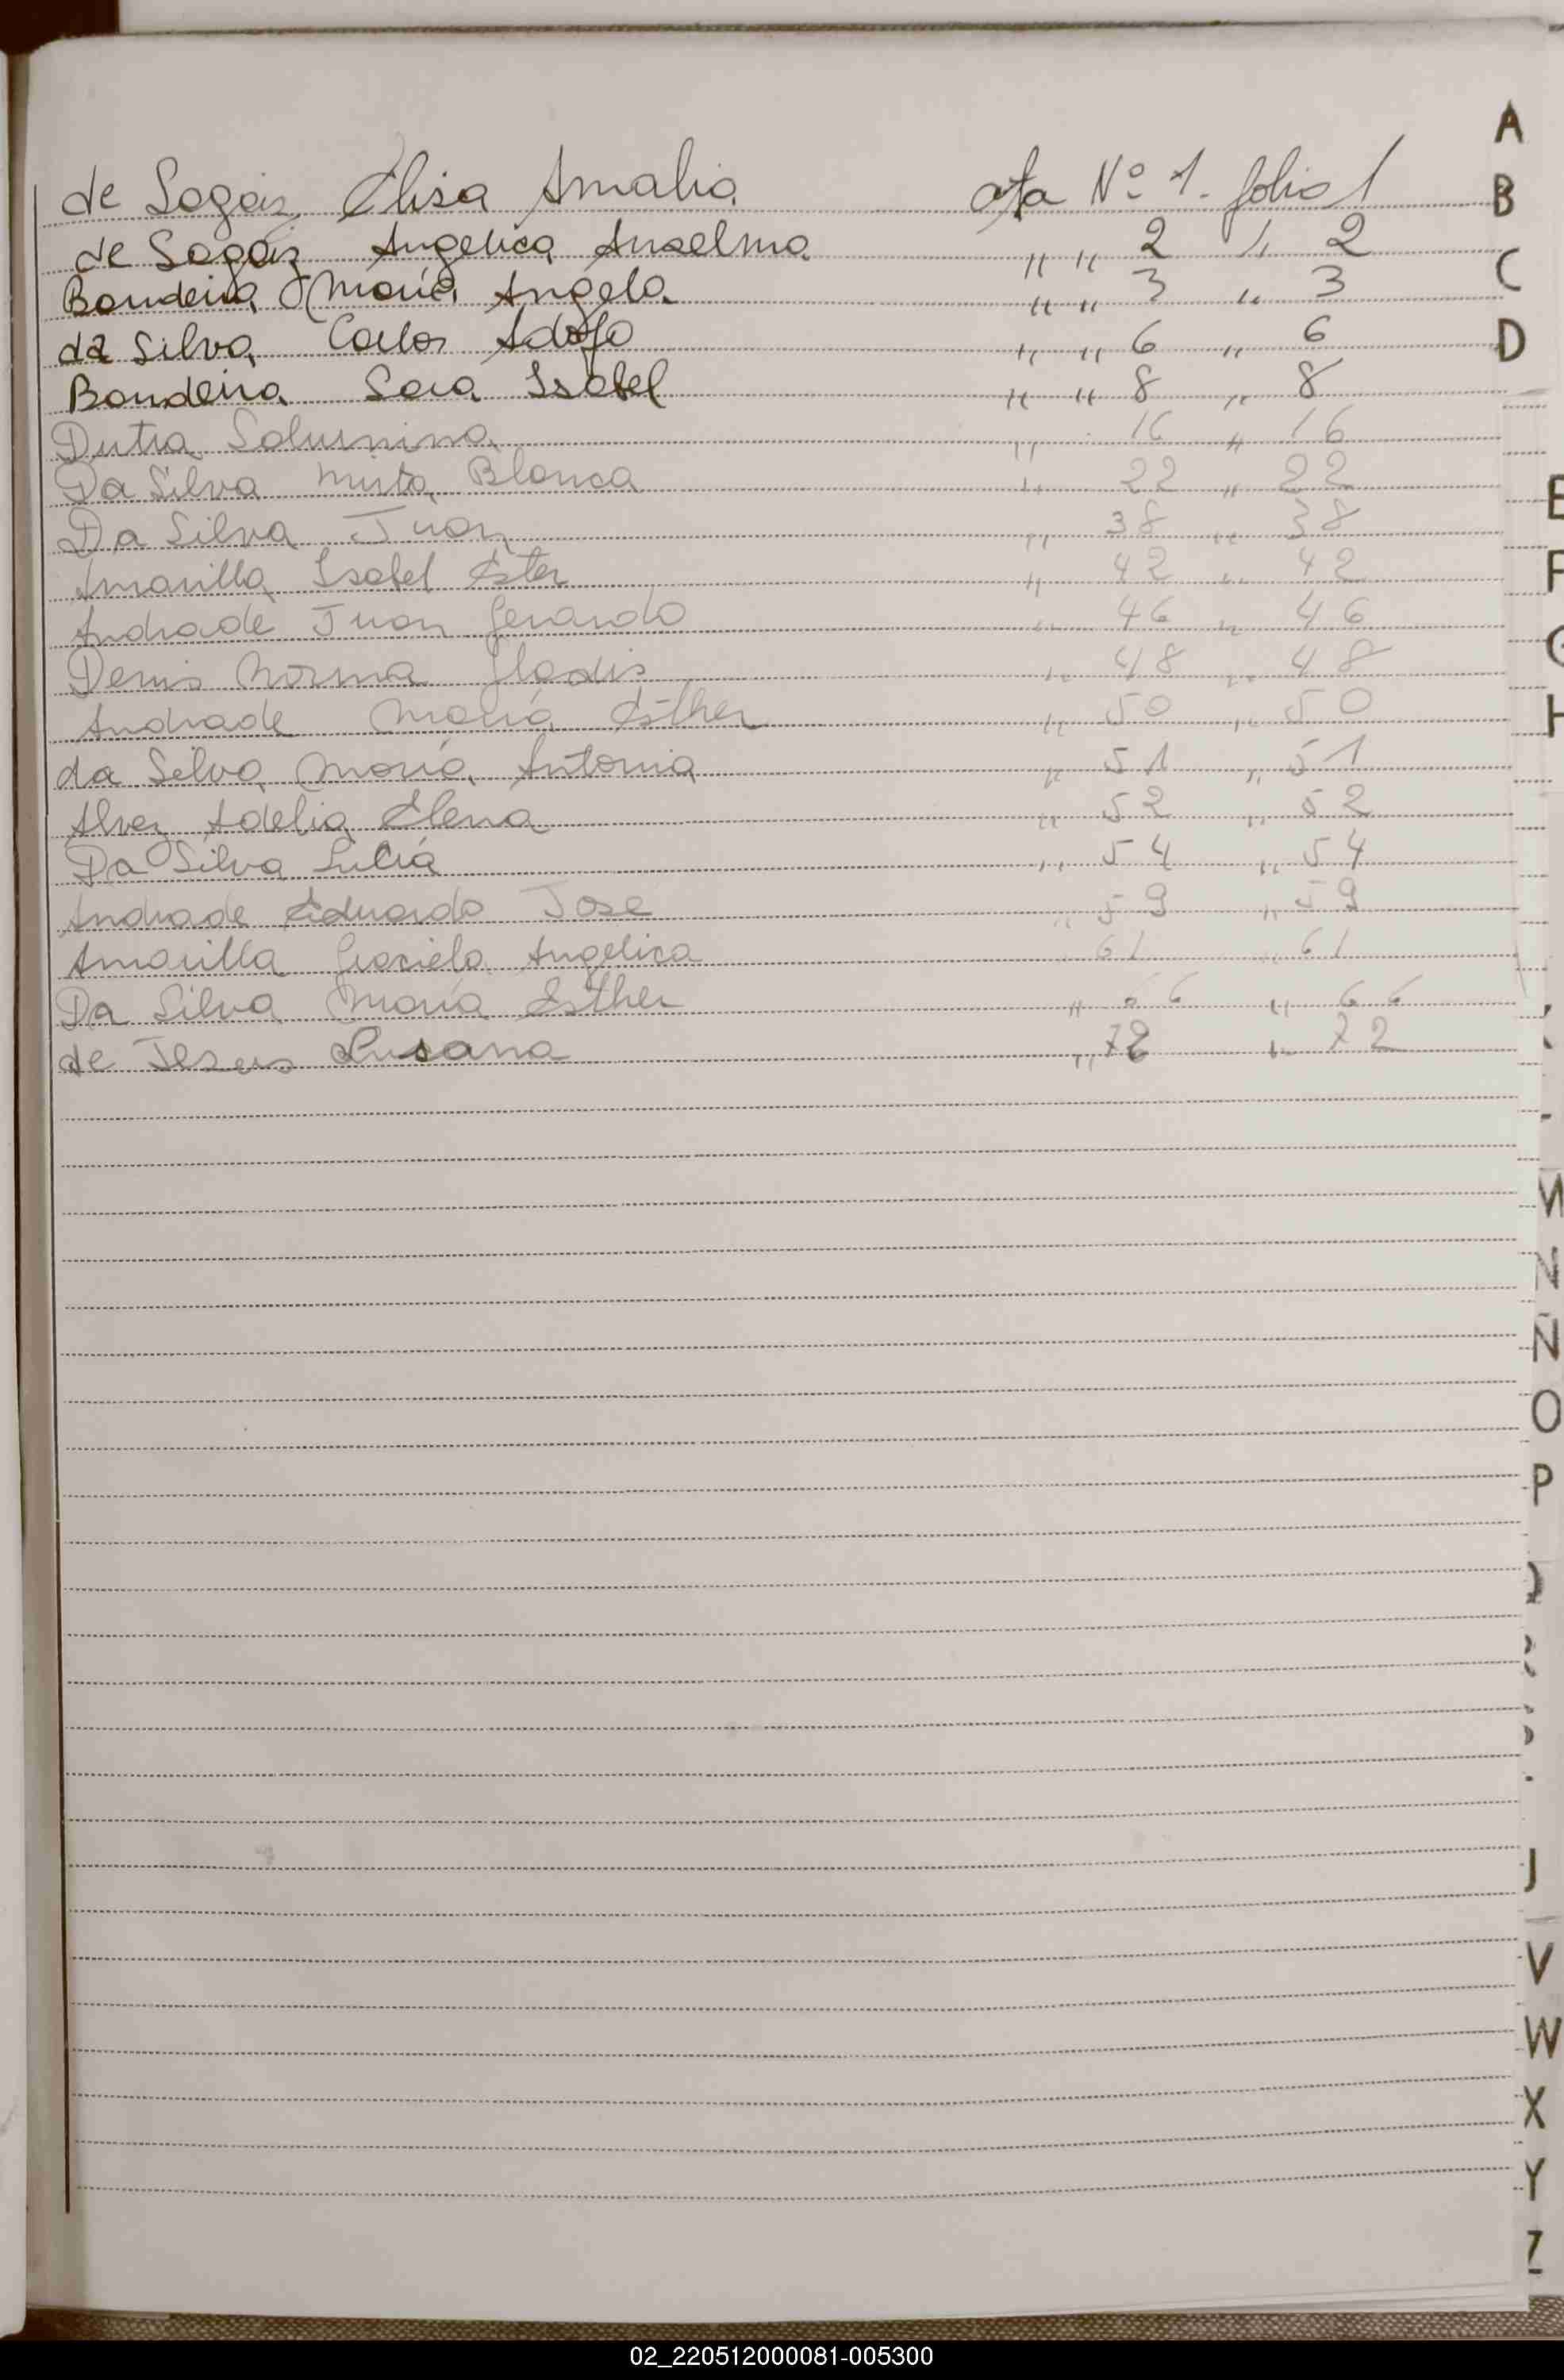 de Sagaiz, Elisa Amalia ata Nº 1. folio 1
de Sagaiz Angelica Anselma " " 2 " 2
Bandeira María Angela " " 3 " 3
da Silva Carlos Adolfo " " 6 " 6
Bandeira Sara Isabel " " 8 " 8
Dutra Saturnina " 16 " 16
Da Silva Mirta Blanca " 22 " 22
Da Silva Juan " 38 " 38
Amarilla Isabel Ester " 42 " 42
Andrade Juan Gerardo " 46 " 46
Denis Norma Gladis " 48 " 48
Andrade María Esther " 50 " 50
da Silva María Antonia " 51 " 51
Alvez Adelia Elena " 52 " 52
Da Silva Lucía " 54 " 54
Andrade Eduardo Jose " 59 " 59
Amarilla Graciela Angelica " 61 " 61
Da Silva María Esther " 66 " 66
de Jesus Susana " 72 " 72
A
B
C
D
E
F
G
H
M
N
Ñ
O
P
J
V
W
X
Y
Z
02_220512000081-005300